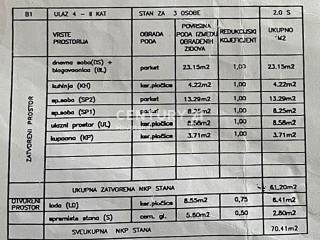 B1 ULAZ 4 - 8 KAT STAN ZA 3 OSOBE 2.0 S
VRSTE PROSTORIJA OBRADA PODA POVRSINA PODA IZMEĐU OBRAĐENIH ZIDOVA REDUKCIJSKI KOEFICIJENT UKUPNO M2
ZATVORENI PROSTOR
dnevna soba(DS) + blagovaonica (BL) parket 23.15m2 1,00 23.15m2
kuhinja (KH) ker.pločice 4.22m2 1,00 4.22m2
sp.soba (SP2) parket 13.29m2 1,00 13.29m2
sp.soba (SP1) parket 8.25m2 1,00 8.25m2
ulazni prostor (UL) ker.pločice 8.58m2 1,00 8.58m2
kupaona (KP) ker.pločice 3.71m2 1,00 3.71m2
CENTURY
UKUPNA ZATVORENA NKP STANA 61,20m2
OTVORENI PROSTOR
lođa (LD) ker.pločice 8.55m2 0,75 6.41m2
spremiste stana (S) cem. gl. 5.60m2 0,50 2.80m2
SVEUKUPNA NKP STANA 70.41m2